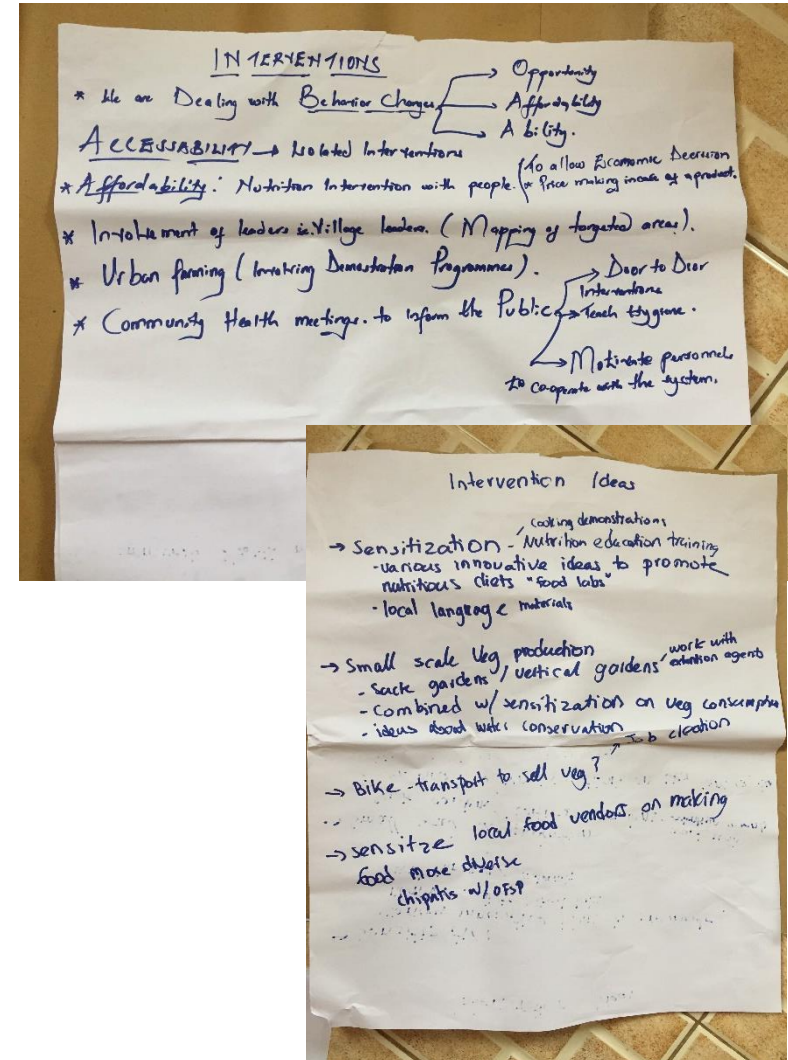 INTERVENTIONS
* We are Dealing with Behavior Changes
→ Opportunity
→ Affordability
→ Ability.
ACCESSABILITY → Isolated Interventions
* Affordability: Nutrition Intervention with people. To allow Economic Decision
* Price making incase of a product.
* Involvement of leaders ie. Village leaders. (Mapping of targeted areas).
* Urban farming (Involving Demostration Programmes).
* Community Health meetings. to inform the Public
→ Door to Door
Interventions
→ Teach Hygiene.
→ Motivate personnels
to co-operate with the system.
Intervention Ideas
cooking demonstrations
→ Sensitization - Nutrition education training
- various innovative ideas to promote
nutritious diets "food labs"
- local language materials
→ Small scale Veg production
- Sack gardens / vertical gardens work with
extention agents
- Combined w/ sensitization on veg consumption
- ideas about water conservation
→ Bike transport to sell veg? Job creation
→ sensitze local food vendors on making
food more diverse
chipatis w/ OFSP